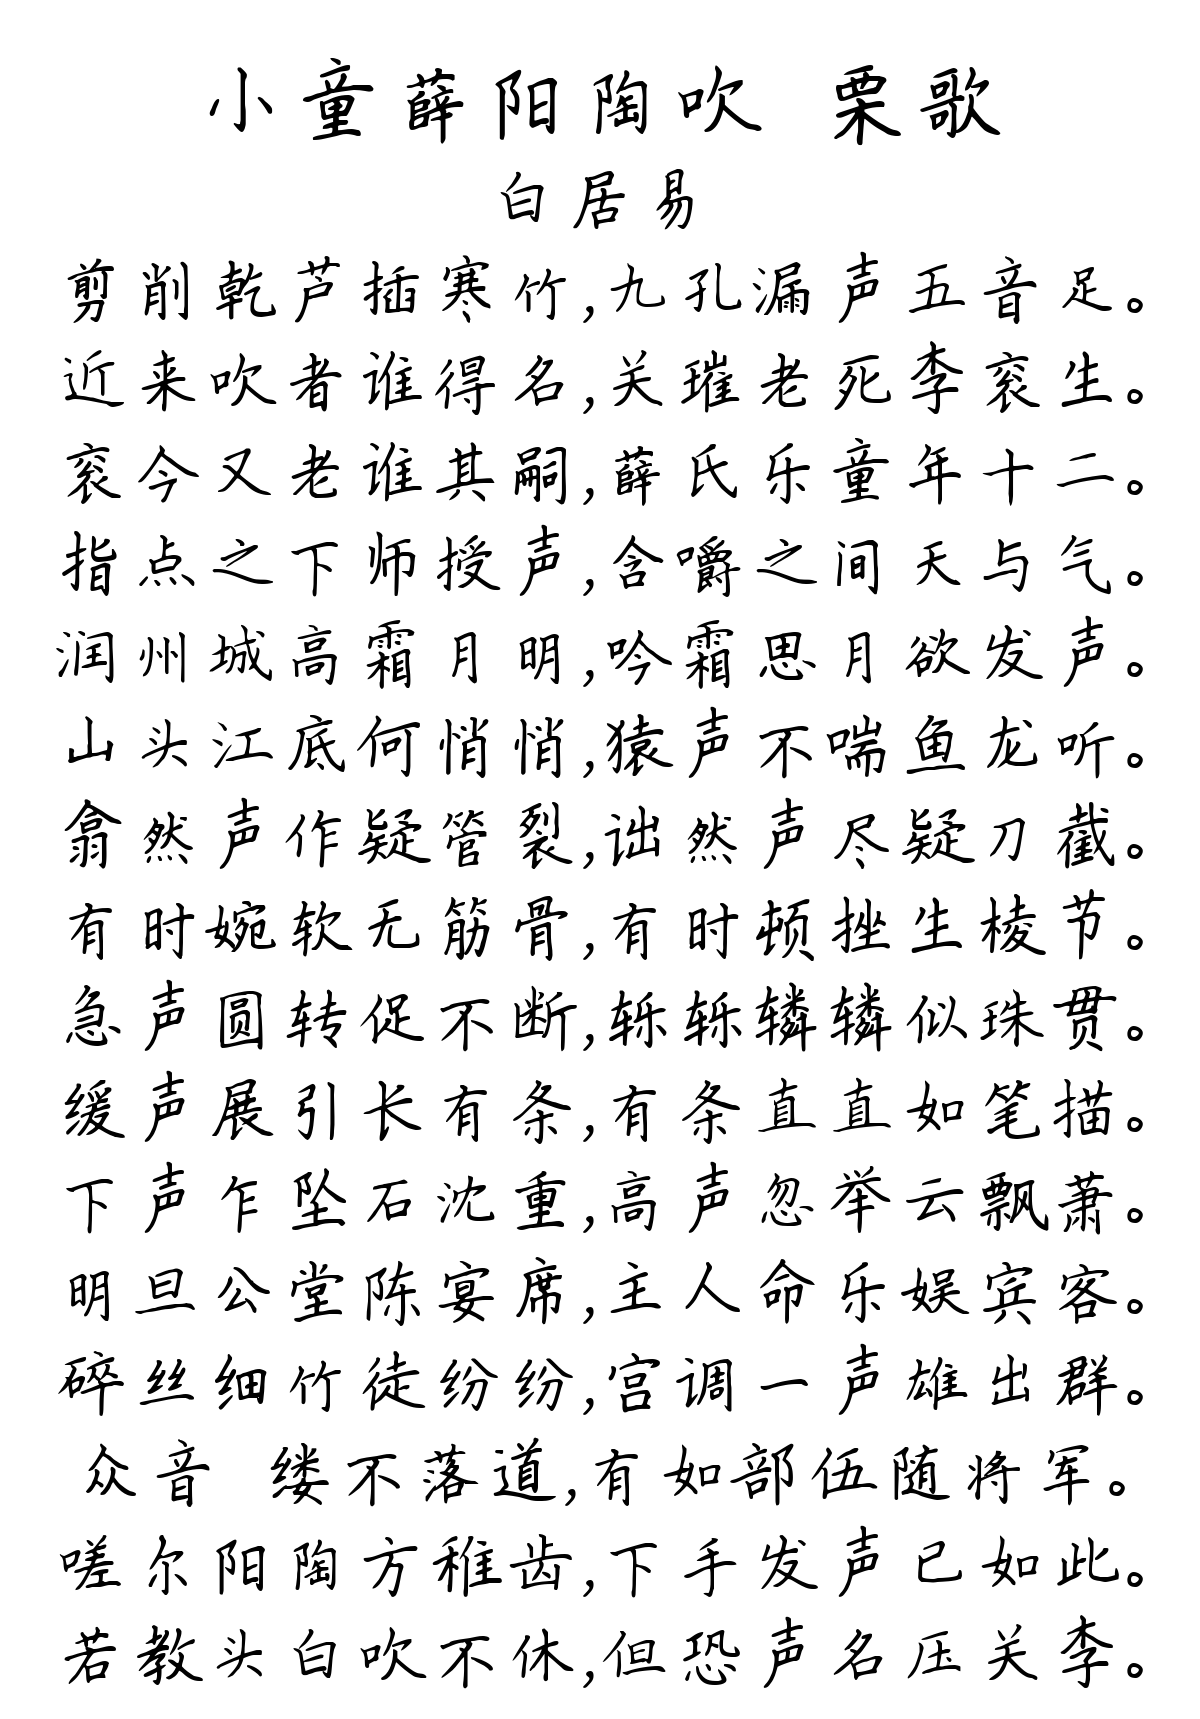 小童薛阳陶吹 栗歌
白居易
剪削乾芦插寒竹,九孔漏声五音足。
近来吹者谁得名,关璀老死李衮生。
衮今又老谁其嗣,薛氏乐童年十二。
指点之下师授声,含嚼之间天与气。
润州城高霜月明,吟霜思月欲发声。
山头江底何悄悄,猿声不喘鱼龙听。
翕然声作疑管裂,诎然声尽疑刀截。
有时婉软无筋骨,有时顿挫生棱节。
急声圆转促不断,轹轹辚辚似珠贯。
缓声展引长有条,有条直直如笔描。
下声乍坠石沈重,高声忽举云飘萧。
明旦公堂陈宴席,主人命乐娱宾客。
碎丝细竹徒纷纷,宫调一声雄出群。
众音 缕不落道,有如部伍随将军。
嗟尔阳陶方稚齿,下手发声已如此。
若教头白吹不休,但恐声名压关李。